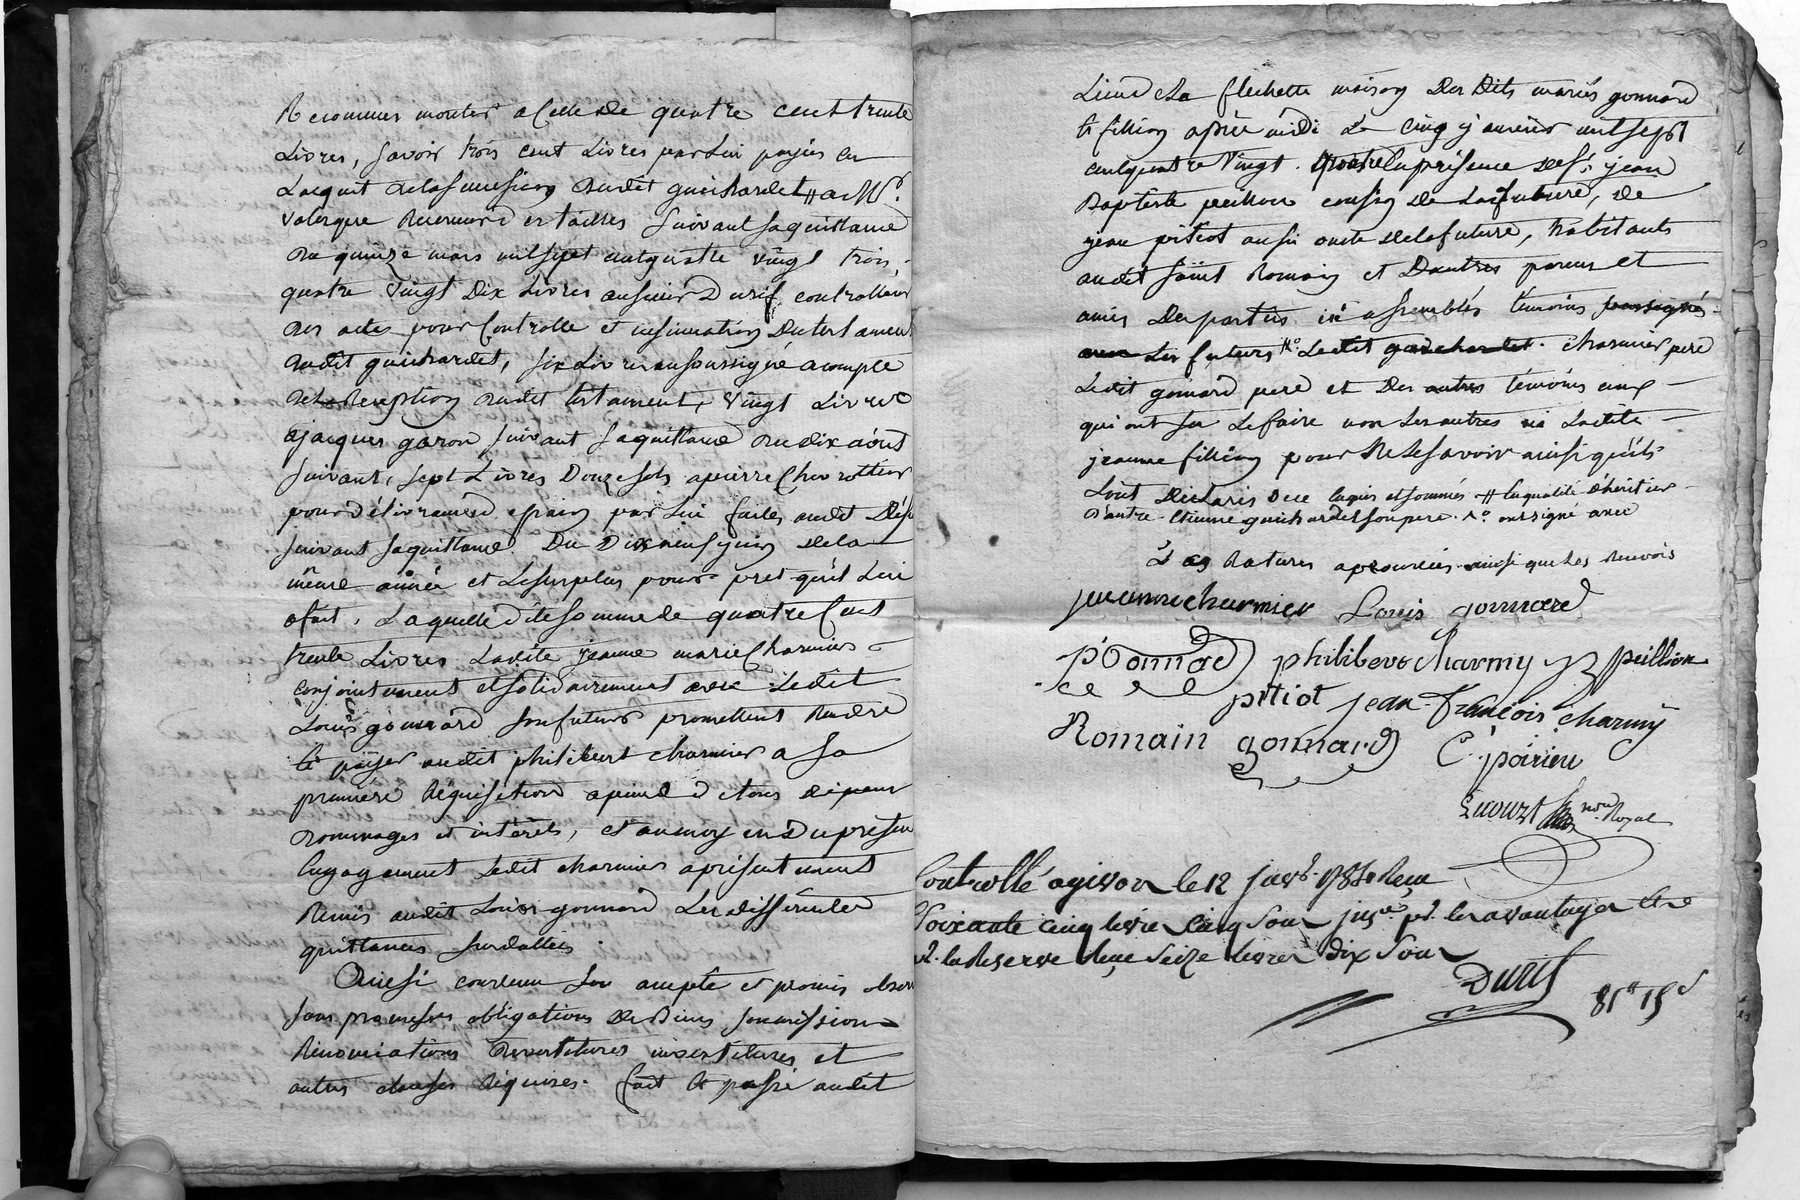 Reconnues monter a Celle de quatre cent trente
Livres, savoir trois cent Livres par Lui payés en
Lacquit de la succession dudit guichardet # a Mr.
suivant sa quittance
du quinze mars mil sept cent quatre vingt trois,
quatre vingt Dix Livres au sieur Durif controlleur
des actes pour Controlle et insinuation du testament
dudit guichardet, six Livres au soussigné acompte
de la Reception dudit testament, vingt Livres
a jacques garon suivant sa quittance du dix août
suivant, sept Livres Douze sols a pierre Chevrotteur
pour délivrance par Lui faites audit
suivant sa quittance Du Dix neuf juin de la
même année et Le surplus pour pret qu'il Lui
a fait, Laquelle dite somme de quatre Cent
trente Livres Ladite jeanne marie Charmier
conjointement et solidairement avec Ledit
Louis gonnard son futur promettent Rendre
et païer audit philibert charmier a Sa
premiere Requisition a peine de tous dépens
dommages et intérêts, et au moyen Du présent
Engagement Ledit charmier a présentement
Remis audit Louis gonnard Les différentes
quittances susdattées.
Ainsi convenu accepté et promis observer
sous promesses obligations de Biens soumissions
Rénonciations et
autres clauses Requises. fait & passé audit
Lieu de La flechette maison Des Dits mariés gonnard
& fillion après midi Le cinq janvier mil sept
cent quatre vingt quatre En présence de Sr. jean
Baptiste peillion cousin de La future, de
jean pitiot aussi de la future, habitants
audit Saint Romain et D'autres parens et
amis Des parties ici assemblés témoins soussignés
avec Les futurs No. Ledit guichardet. charmier pere
Ledit gonnard pere et Des autres témoins ceux
qui ont su Le faire non Les autres ni Ladite
jeanne fillion pour Ne Le savoir ainsi qu'ils
L'ont Déclaré De ce Enquis et sommés # En qualité d'héritier
D'autre Etienne guichardet son pere. No. ont signé avec
Les Ratures aprouvées ainsi que Les Renvois
jeanne charmier Louis gonnard
P Gonnard philibert Charmy JB peillion
pitiot jean-françois charmy
Romain gonnard C. poirieu
nore. Royal
Controllé a givors le 12 janvr. 1784 Reçu
Soixante cinq livres cinq sous les avantages
pr. la Reserve Reçu Seize livres dix Sous
Durif
81# 15s